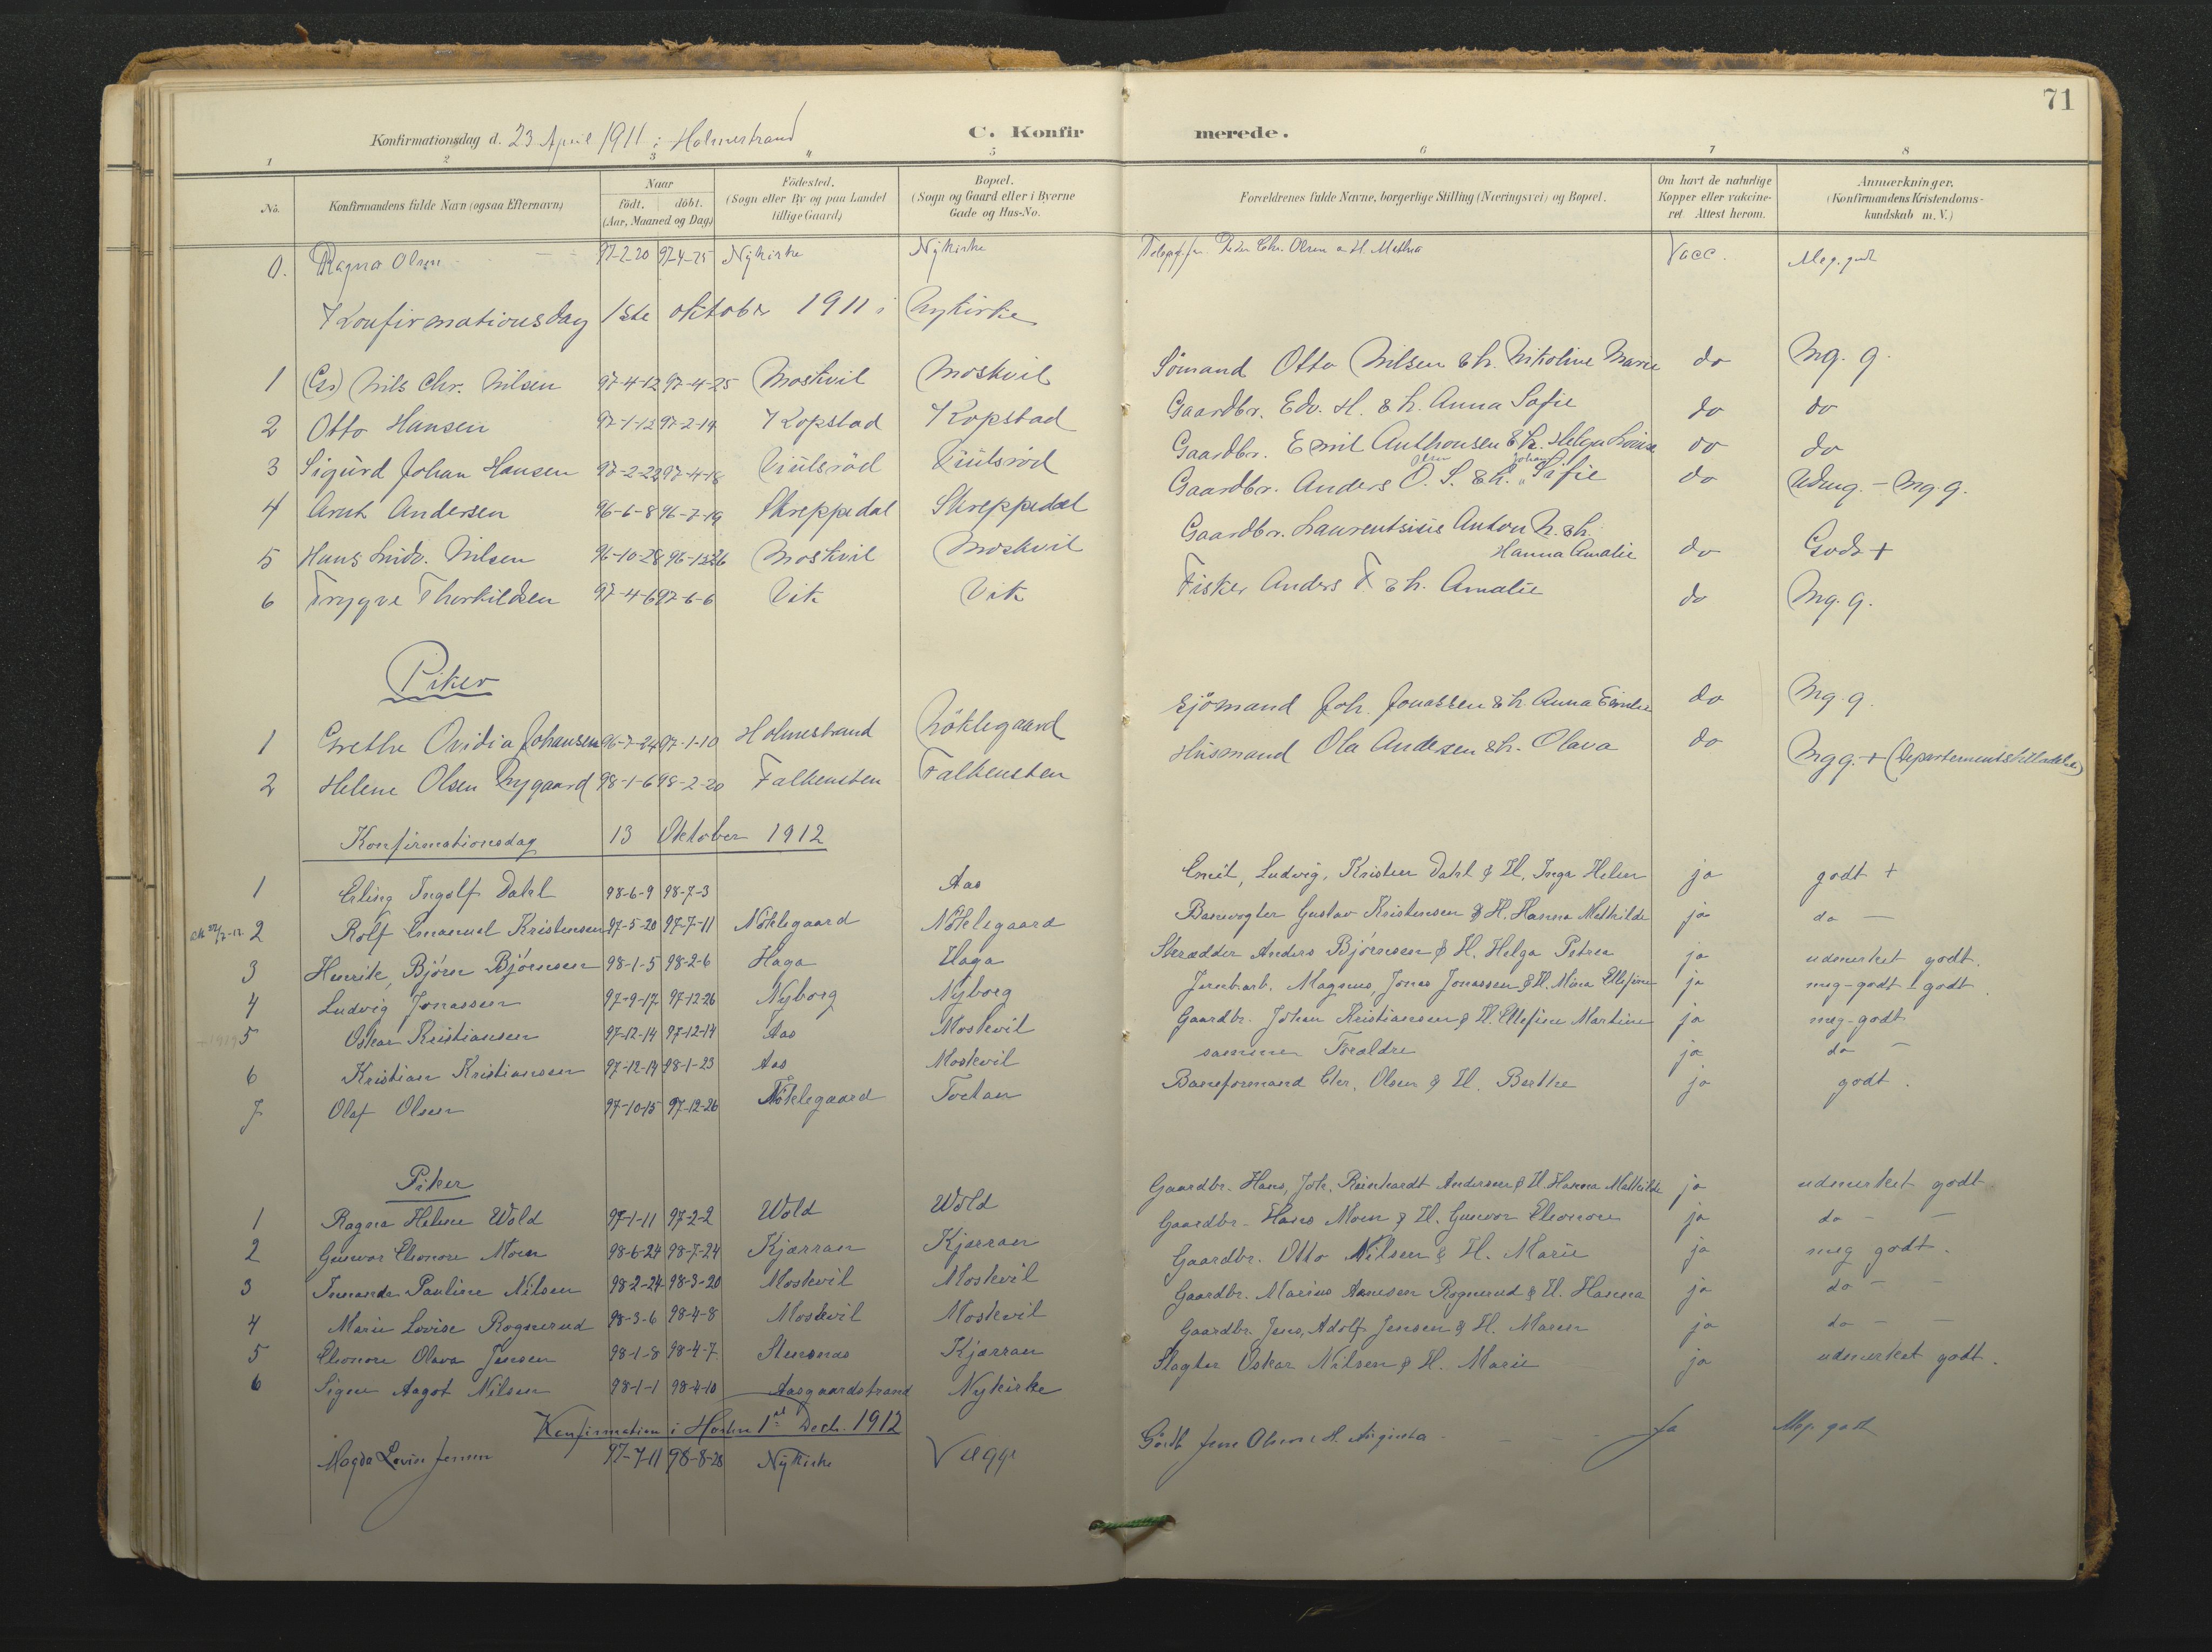 71
Konfirmationsdag d. 23 April 1911 i Holmestrand
C. Konfirmerede.
1 2 3 4 5 6 7 8
No. Konfirmandens fulde Navn (ogsaa Efternavn) Naar födt. döbt. (Aar, Maaned og Dag) Födested. (Sogn eller By og paa Landet tillige Gaard) Bopæl. (Sogn og Gaard eller i Byerne Gade og Hus-No. Forældrenes fulde Navne, borgerlige Stilling (Næringsvei) og Bopæl. Om havt de naturlige Kopper eller vakcineret Attest herom. Anmærkninger. (Konfirmandens Kristendomskundskab m. V.)
0. Ragna Olsen 97-2-20 97-4-25 Nykirke Nykirke Peder Chr. Olsen o H. Mathea Vacc. Meg. godt
Konfirmationsdag 1ste oktober 1911 i Nykirke
1 Nils Chr. Nilsen 97-4-12 97-4-25 Moskvil Moskvil Sömand Otto Nilsen & h. Nikoline Marie do Mg. g.
2 Otto Hansen 97-1-12 97-2-19 Kopstad Kopstad Gaardbr. Edv. H. & h. Anna Sofie do do
3 Sigurd Johan Hansen 97-2-22 97-4-18 Viulsröd Viulsröd Gaardbr. Emil Anthonsen & h. Helga Lovise do do
4 Arnt Andersen 96-6-8 96-7-19 Skreppedal Skreppedal Gaardbr. Anders O. S. & h. Johan Sofie do Udmg. - Mg. g.
5 Hans Ludv. Nilsen 96-10-28 96-12-26 Moskvil Moskvil Gaardbr. Laurentsius Anton N. & h. Hanna Amalie do Godt +
6 Trygve Thorkildsen 97-4-6 97-6-6 Vik Vik Fisker Anders T. & h. Amalie do Mg. g.
Piker
1 Grethe Ovidia Johansen 96-7-24 97-1-10 Holmestrand Nöklegaard Sjömand Joh. Jonassen & h. Anna Emilie do Mg. g.
2 Helene Olsen Nygaard 98-1-6 98-2-20 Falkensten Falkensten Husmand Ola Andersen & h. Olava do Mg g. + (Departementstilladelse)
Konfirmationsdag 13 Oktober 1912
1 Erling Ingolf Dahl 98-6-9 98-7-3 Aas Emil, Ludvig, Kristian Dahl & H. Inga Helene ja godt +
2 Rolf Emanuel Kristensen 97-5-20 97-7-11 Nöklegaard Nöklegaard Banevogter Gustav Kristensen & H. Hanna Mathilde ja do -
3 Henrik, Björn Björnsen 98-1-5 98-2-6 Haga Haga Skrædder Anders Björnsen & H. Helga Petrea ja udmerket godt.
4 Ludvig Jonassen 97-9-17 97-12-26 Nyborg Nyborg Jernb.arb. Magnus, Jonas Jonassen & H. Mina Ellefine ja meg-godt - godt.
5 Oskar Kristiansen 97-12-14 97-12-14 Aas Moskvil Gaardbr. Johan Kristiansen & H. Ellefine Martine ja meg-godt
6 Kristian Kristiansen 97-12-14 98-1-23 Aas Moskvil samme Foræeldre ja do -
7 Olaf Olsen 97-10-15 97-12-26 Nöklegaard Toctan Baneformand Chr. Olsen & H. Berthe ja godt.
Piker
1 Ragna Helene Wold 97-1-11 97-2-2 Wold Wold Gaardbr. Hans, Joh. Reinhardt Andersen & H. Hanna Mathilde ja udmerket godt
2 Gunvor Eleonore Moen 98-6-24 98-7-24 Kjærran Kjærran Gaardbr. Hans Moen & H. Gunvor Eleonore ja do - -
3 Pauline Nilsen 98-2-24 98-3-20 Moskvil Moskvil Gaardbr. Otto Nilsen & H. Marie ja meg godt.
4 Marie Lovise Rognerud 98-3-6 98-4-8 Moskvil Moskvil Gaardbr. Marius Rognerud & H. Hanna ja do - -
5 Eleonore Olava Jensen 98-1-8 98-4-7 Stensnæs Kjærran Gaardbr. Jens, Adolf Jensen & H. Maren ja do - -
6 Signe Aagot Nilsen 98-1-1 98-4-10 Aasgaardstrand Nykirke Slagter Oskar Nilsen & H. Marie ja udmerket godt.
Konfirmation i Horten 1st Decb. 1912
Magda Lovise Jensen 97-7-11 98-8-28 Nykirke Jens Olsen & H. ja Meg. godt